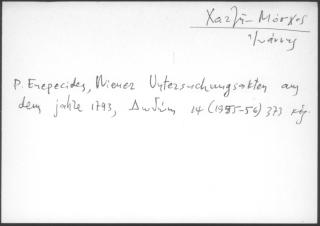 Χατζῆ-Μόσχος
Ἰωάννης
P. Enepecides, Wiener Untersuchungsakten aus
dem Jahre 1793, Δωδών 14 (1955-56) 373 κἑξ.